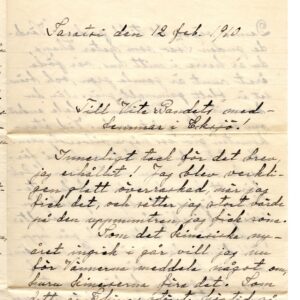 Taratsi den 12 feb. 1910.
Till Vita Bandets med-
lemmar i Eksjö!
Innerligt tack för det brev,
jag erhållit! Jag blev verkli-
gen glatt överraskad, när jag
fick det, och sätter jag stort värde
på den uppmuntran jag fick röna.
Som det kinesiska ny-
året ingick i går vill jag nu
för Vännerna meddela något om,
huru kineserna fira det. Som